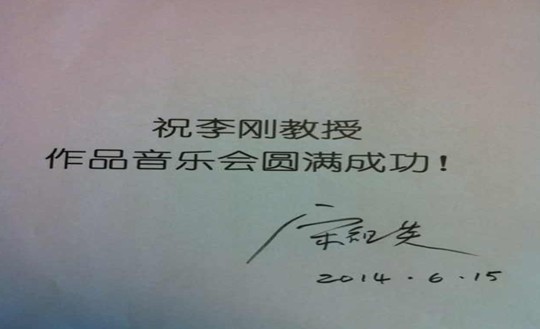 祝李刚教授
作品音乐会圆满成功！
2014.6.15